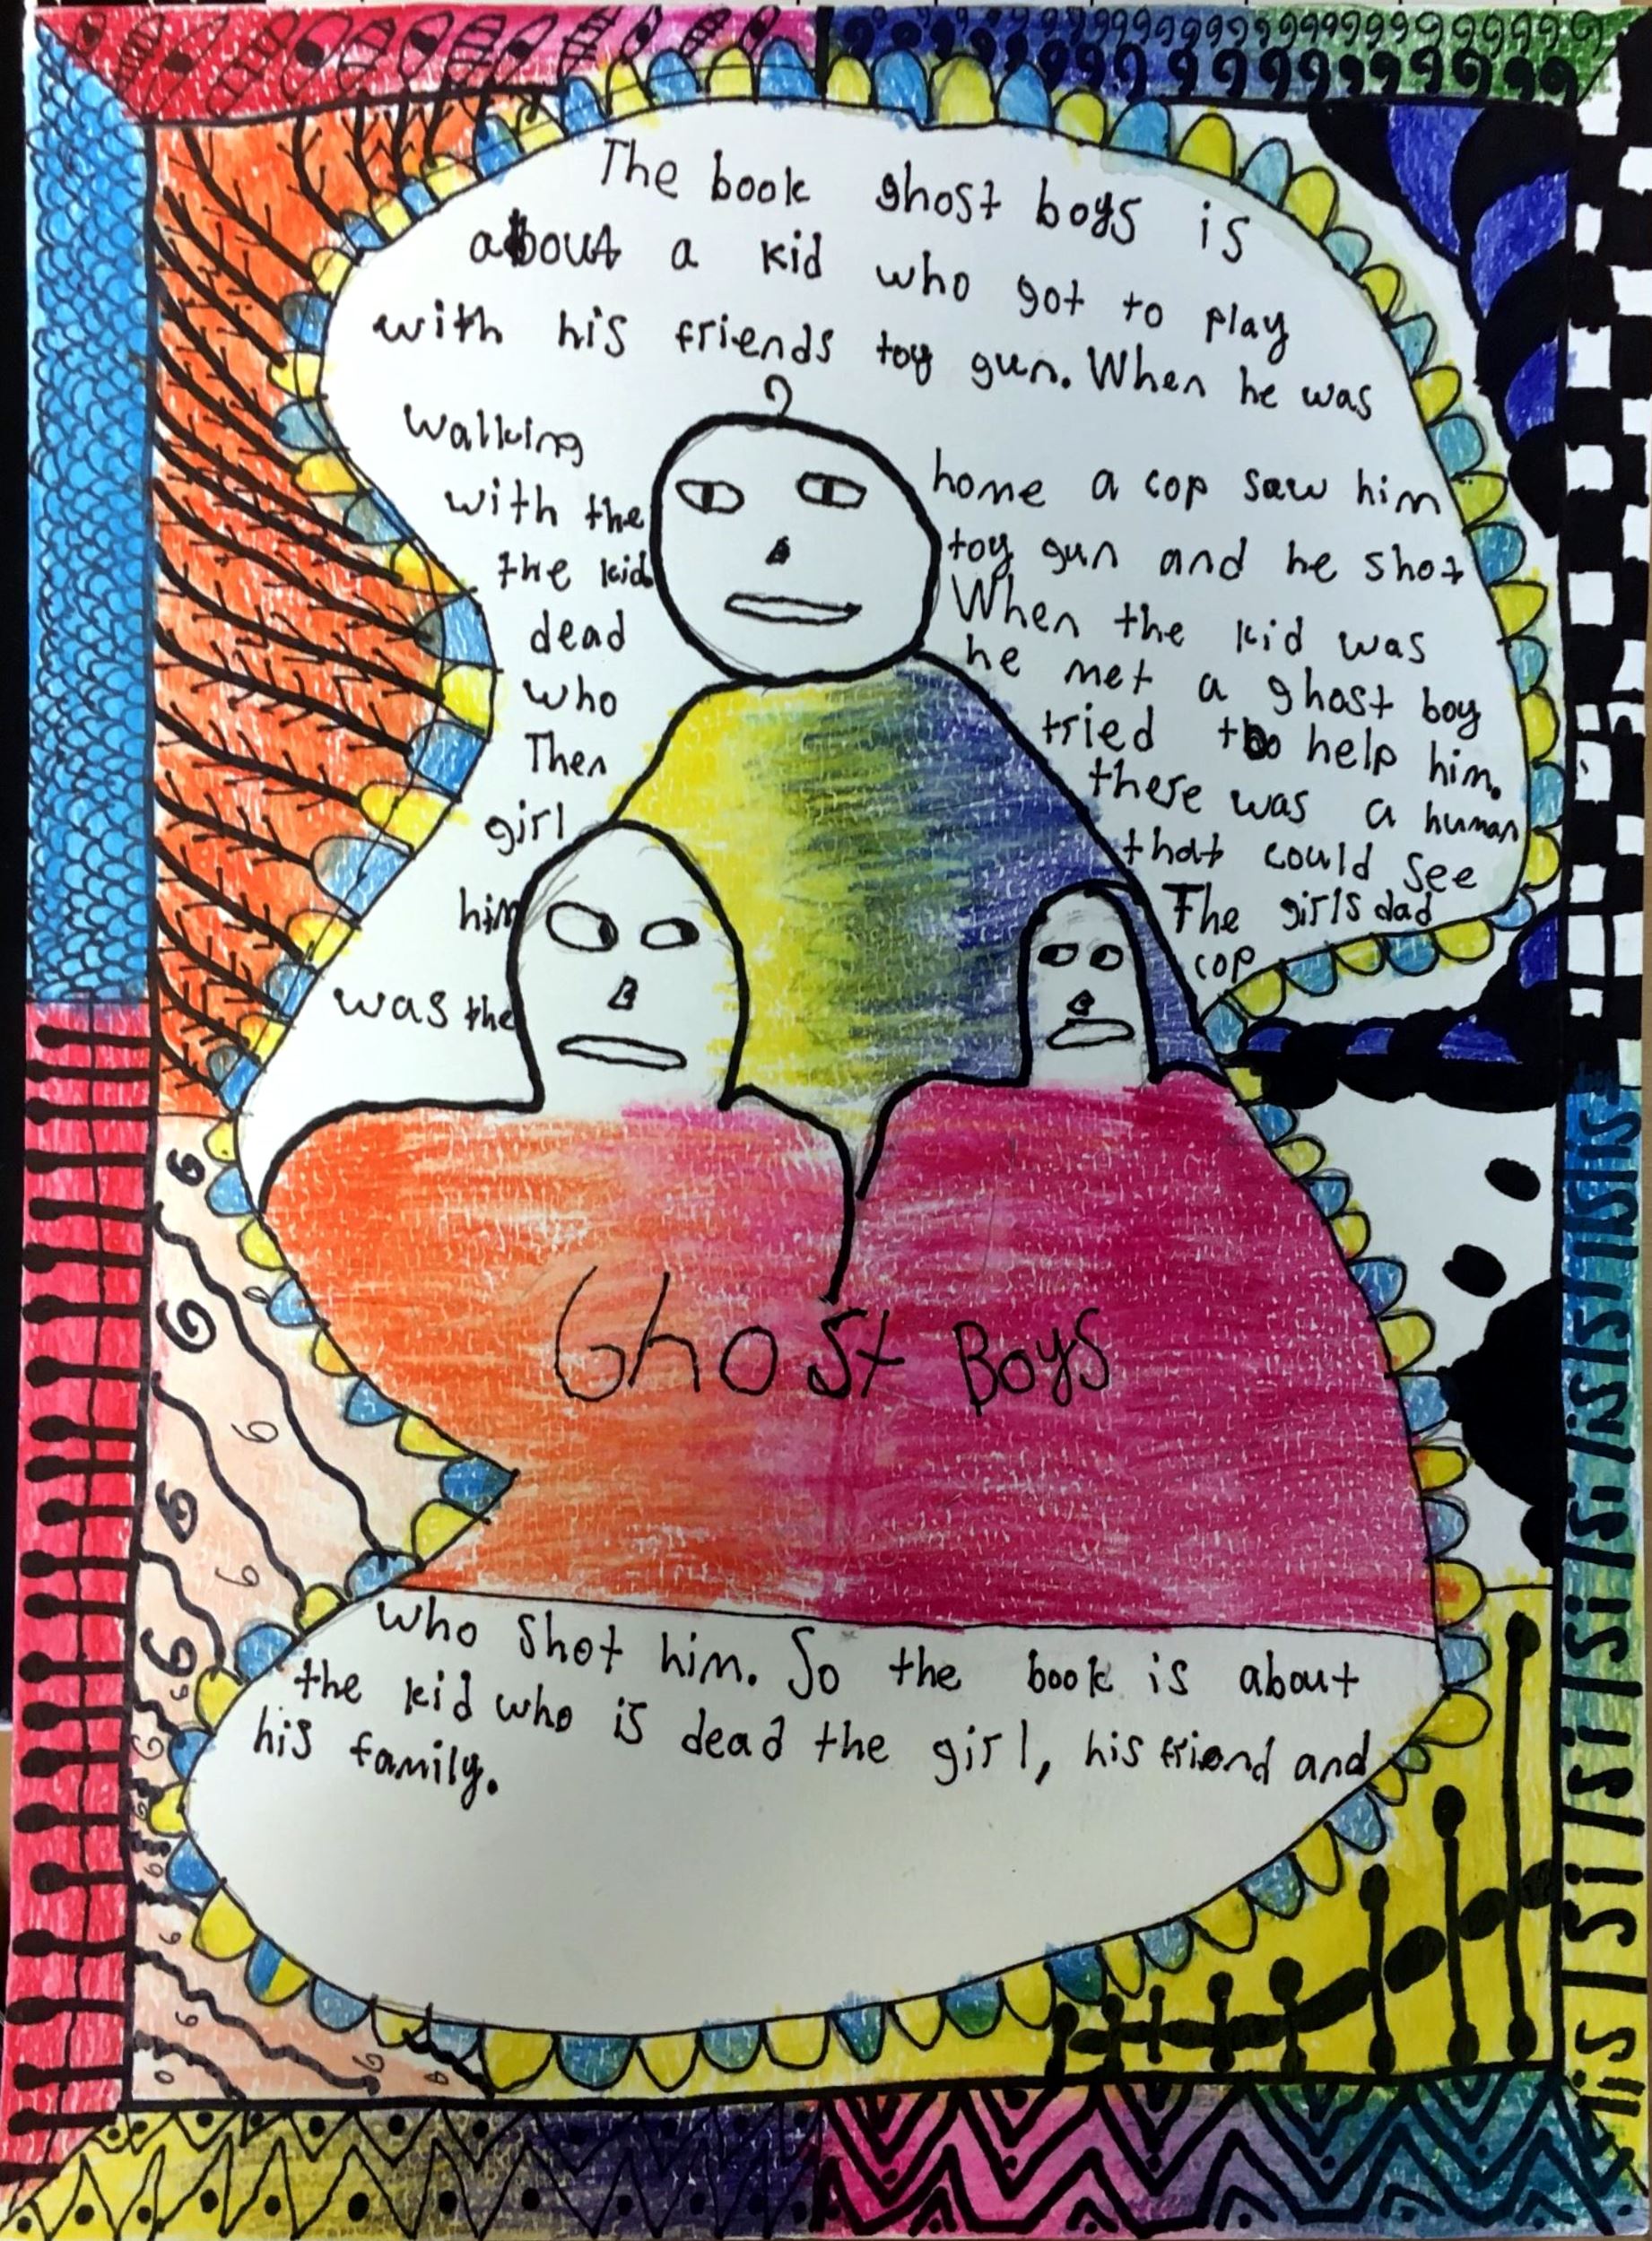 The book ghost boys is
about a kid who got to play
with his friends toy gun. When he was
walking home a cop saw him
with the toy gun and he shot
the kid When the kid was
dead he met a ghost boy
who tried to help him.
Then there was a human
girl that could see
him The girls dad
was the cop
Ghost Boys
who shot him. So the book is about
the kid who is dead the girl, his friend and
his family.